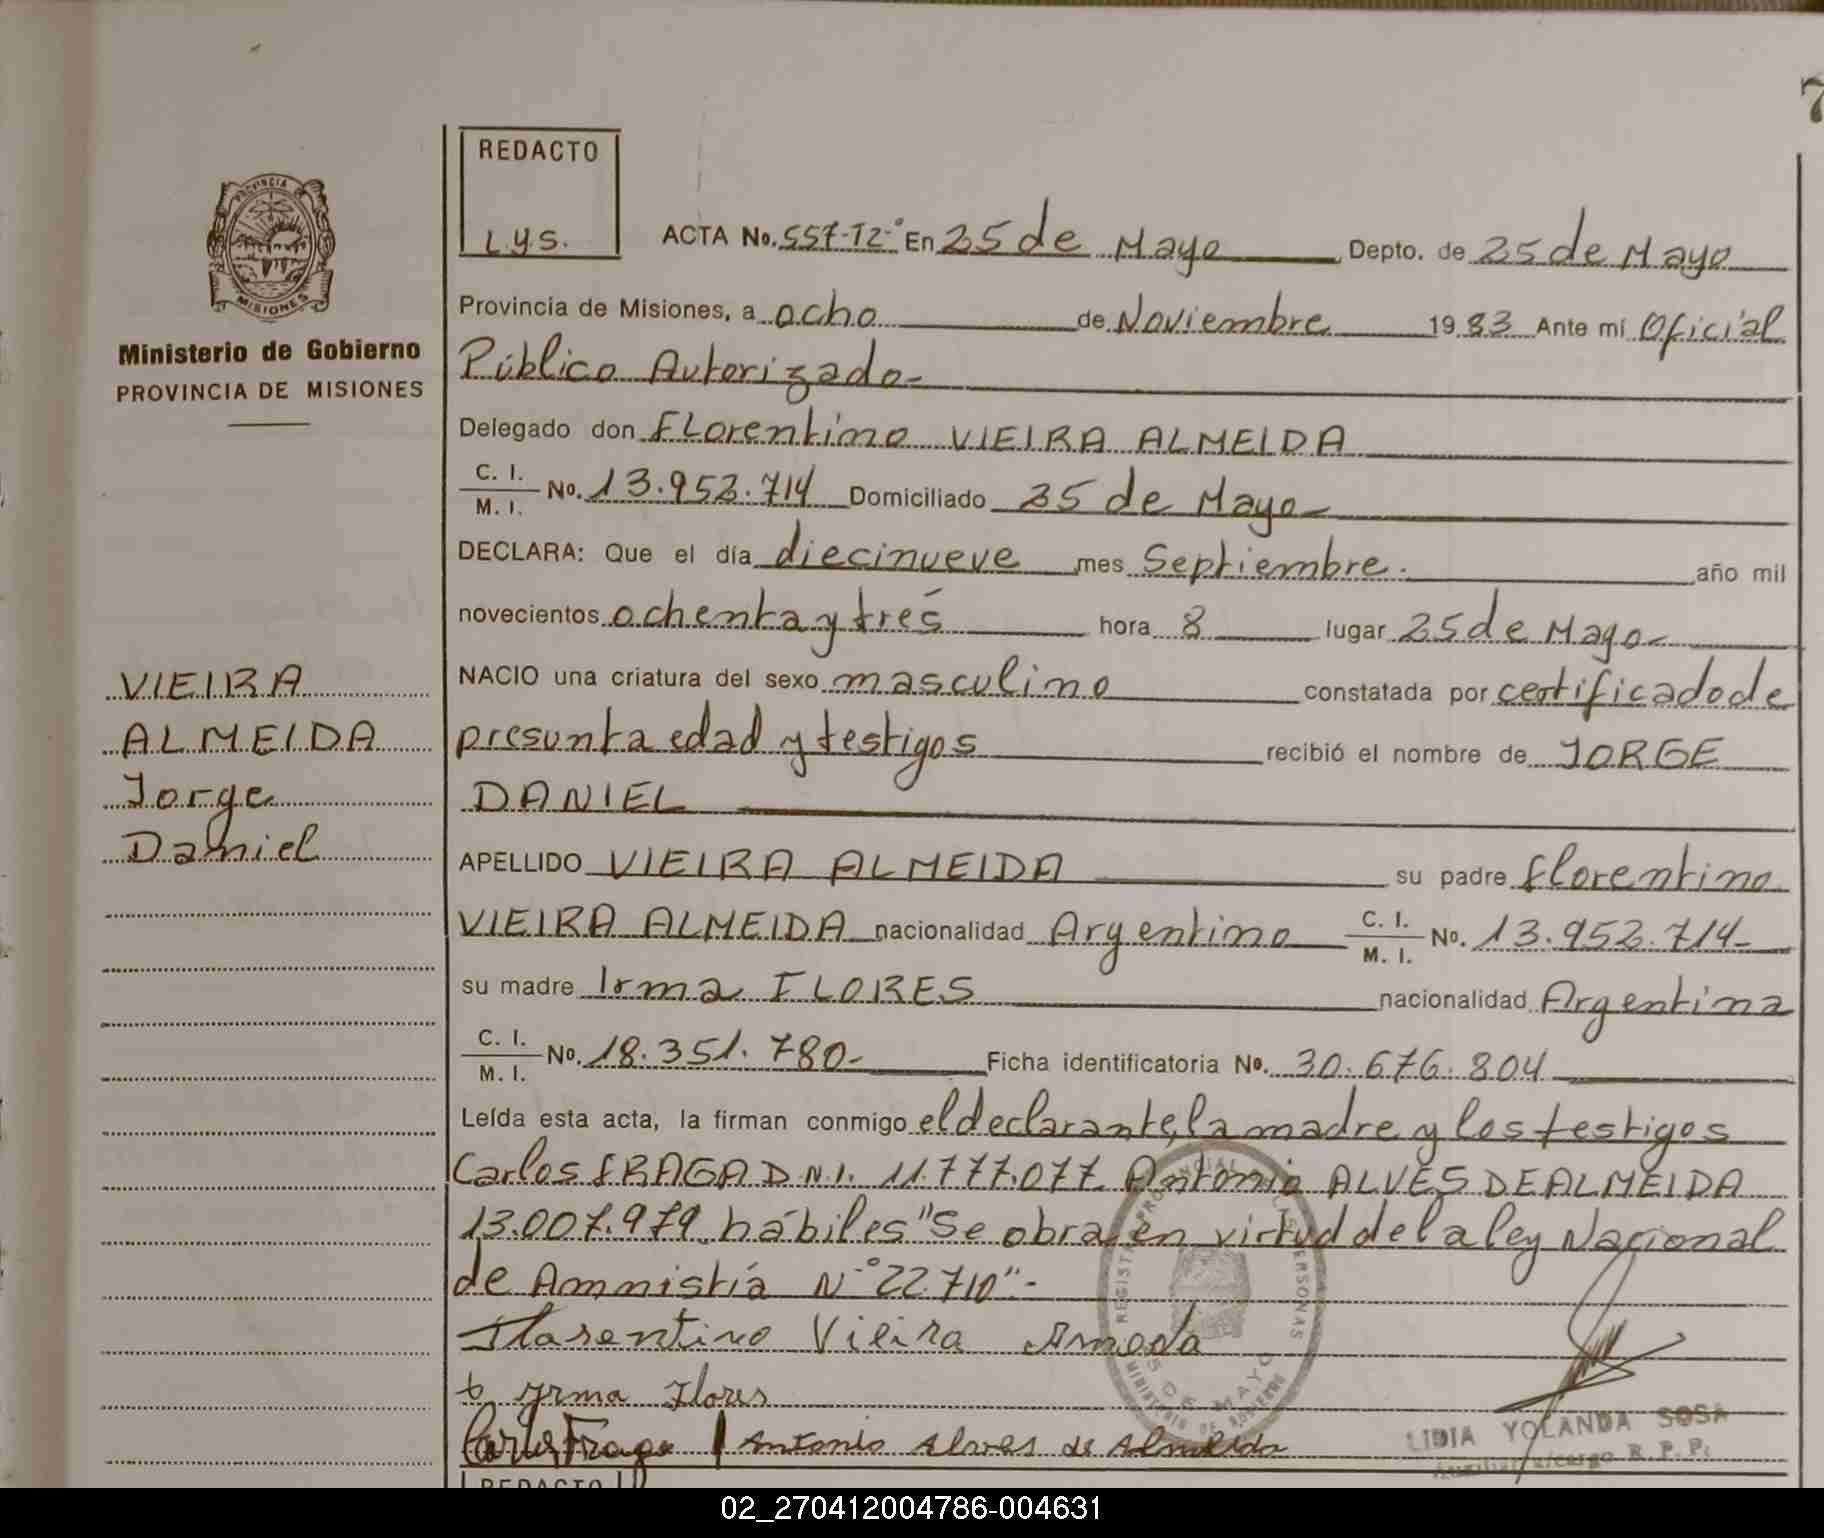 7
REDACTO
L.y.S.
PROVINCIA DE
MISIONES
Ministerio de Gobierno
PROVINCIA DE MISIONES
ACTA No. 557-T2-° En 25 de Mayo Depto. de 25 de Mayo
Provincia de Misiones, a ocho de Noviembre 1983 Ante mí Oficial
Público Autorizado-
Delegado don Florentino VIEIRA ALMEIDA
C. I.
M. I. No. 13.953.714 Domiciliado 25 de Mayo-
DECLARA: Que el día diecinueve mes Septiembre. año mil
novecientos ochenta y tres hora 8 lugar 25 de Mayo-
NACIO una criatura del sexo masculino constatada por certificado de
presunta edad y testigos recibió el nombre de JORGE
DANIEL
VIEIRA
ALMEIDA
Jorge
Daniel
APELLIDO VIEIRA ALMEIDA su padre florentino
VIEIRA ALMEIDA nacionalidad Argentino C. I.
M. I. No. 13.953.714-
su madre Irma FLORES nacionalidad Argentina
C. I.
M. I. No. 18.351.780- Ficha identificatoria No. 30.676.804
Leída esta acta, la firman conmigo el declarante, la madre y los testigos
Carlos FRAGA D.N.I. 11.777.077. Antonio ALVES DE ALMEIDA
13.007.979. hábiles "Se obra en virtud de la ley Nacional
de Amnistía N-° 22.710"-
Florentino Vieira Ameda
Irma Flores
Carlos Fraga Antonio Alves de Almeida
REGISTRO PROVINCIAL DE LAS PERSONAS
25 DE MAYO
MINISTERIO DE GOBIERNO
LIDIA YOLANDA SOSA
Auxiliar a/cargo R. P. P.
REDACTO
02_270412004786-004631